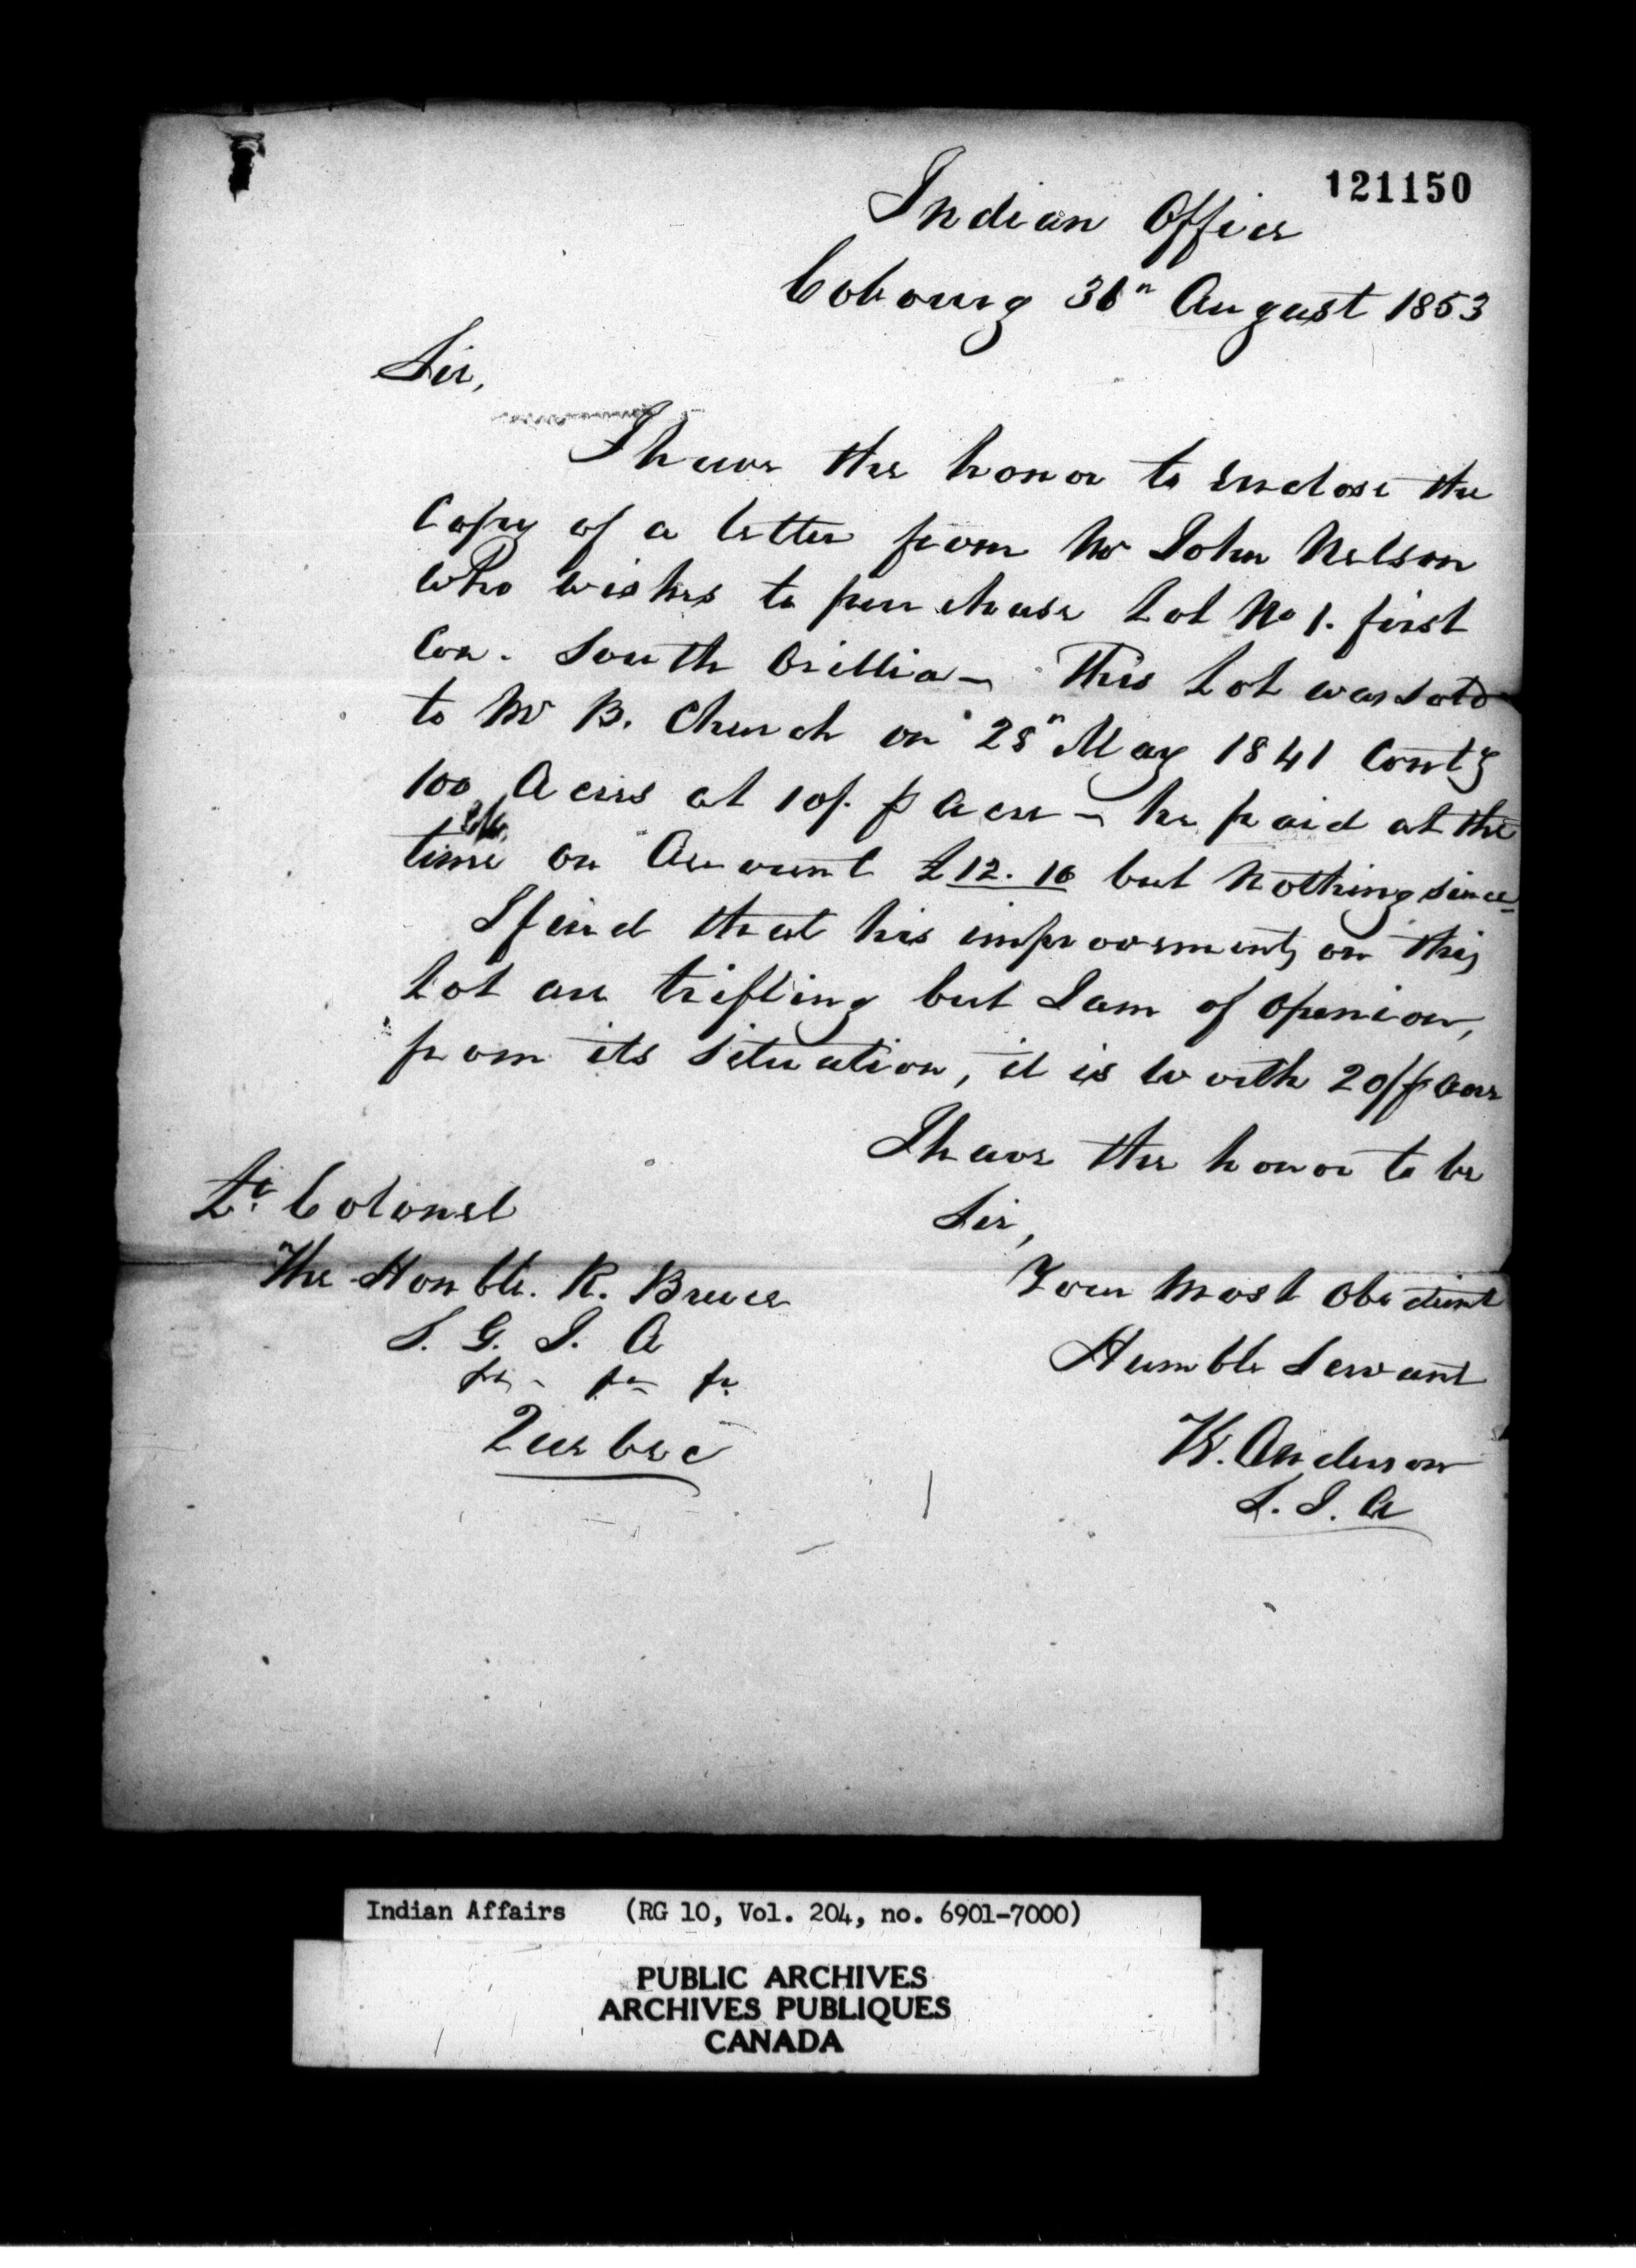 121150
Indian Office
Cobourg 30" August 1853
Sir,
I have the honor to enclose the
Copy of a letter from Mr John Nelson
who wishes to purchase Lot No 1. first
Con. South Orillia - This Lot was sold
to Mr B. Church on 28" May 1841 Contg
100 Acres at 10/. p Acre - he paid at the
time on Account £12.10 but nothing since
I find that his improvements on this
Lot are trifling but I am of opinion,
from its situation, it is worth 20/ p acre
I have the honor to be
Sir,
Your most Obedient
Humble Servant
W. Anderson
S. I. A
Lt. Colonel
The Honble. R. Bruce
S. G. I. A
Quebec
Indian Affairs (RG 10, Vol. 204, no. 6901-7000)
PUBLIC ARCHIVES
ARCHIVES PUBLIQUES
CANADA